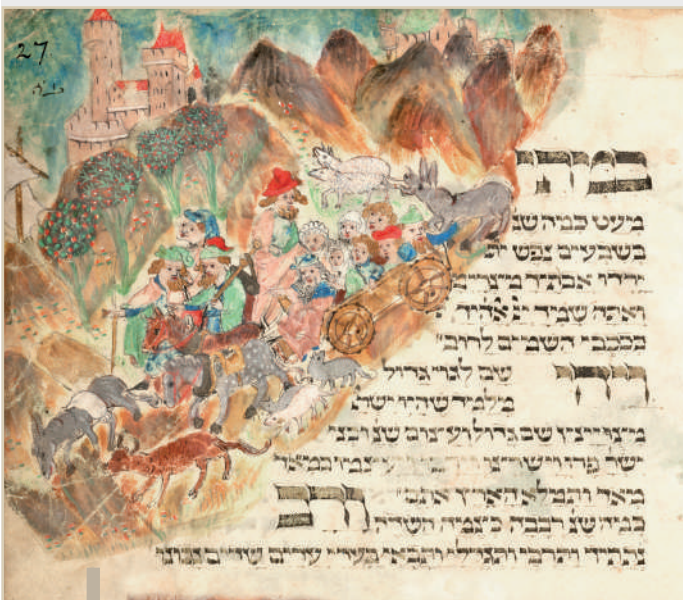 27
במתי
מעט כמה שנ
בשבעים נפש
ירדו אבתיך מצרים
ועתה שמיך
ככוכבי השמים לרוב
ויהי שם לגוי גדול
מלמד שהיו ישר
מצויינין שם גדול ועצום שנ ובני
ישר פרו וישרצו ויעצמו במאד
מאד ותמלא הארץ אתם ורב
כמה שנ רבבה כצמח השדה
נתתיך ותרבי ותגדלי ותבאי בעדי עדיים שדיים נכונו